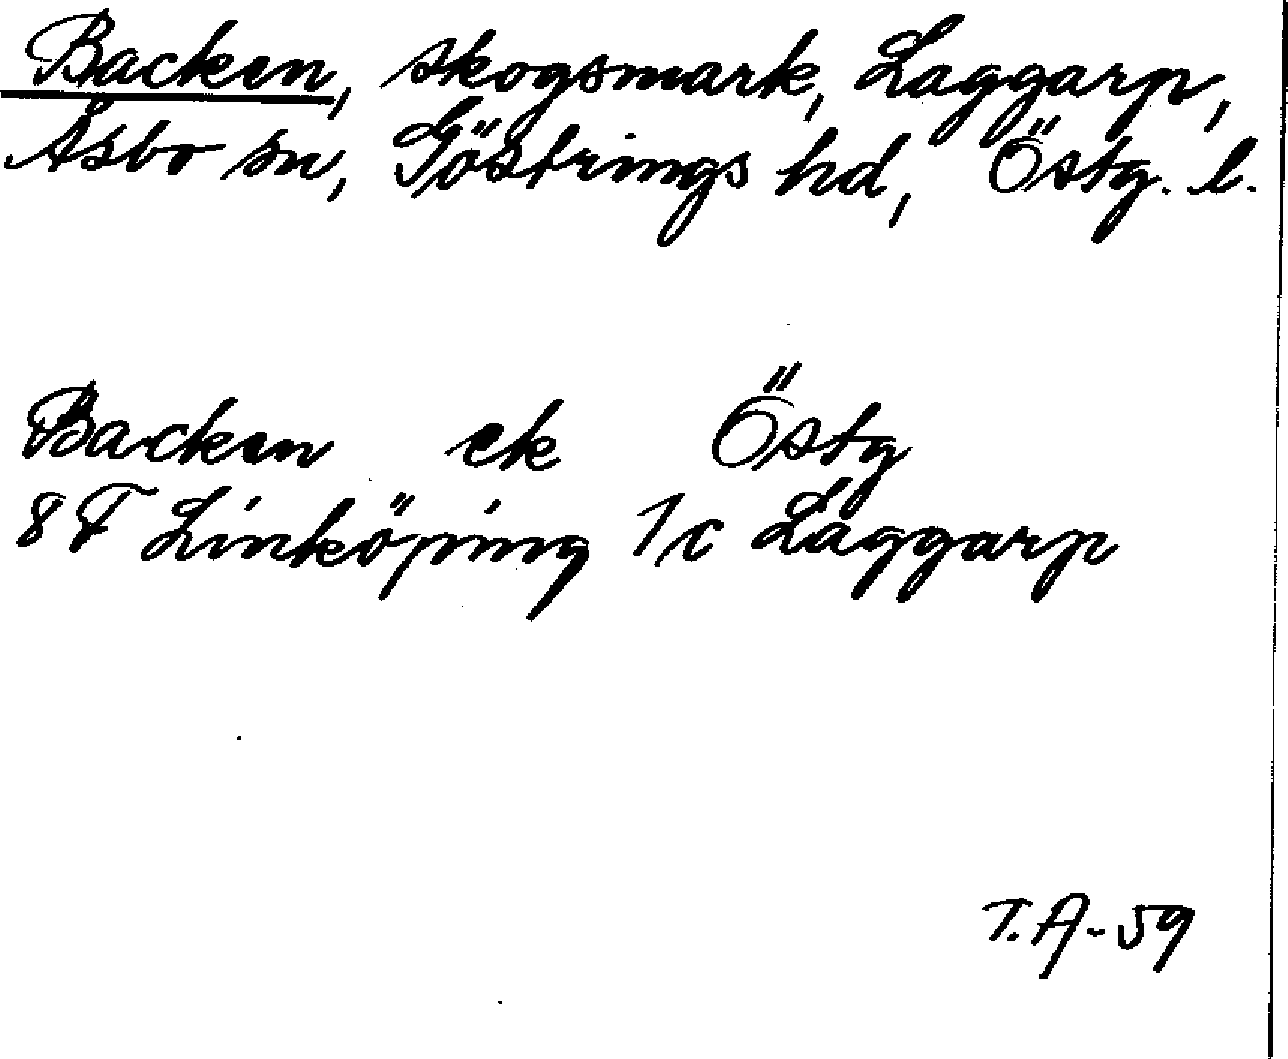 Backen, skogsmark, Laggarp,
Åsbo sn, Göstrings hd, Östg. l.
Backen ek Östg
8 F Linköping 1c Laggarp
T.A-59